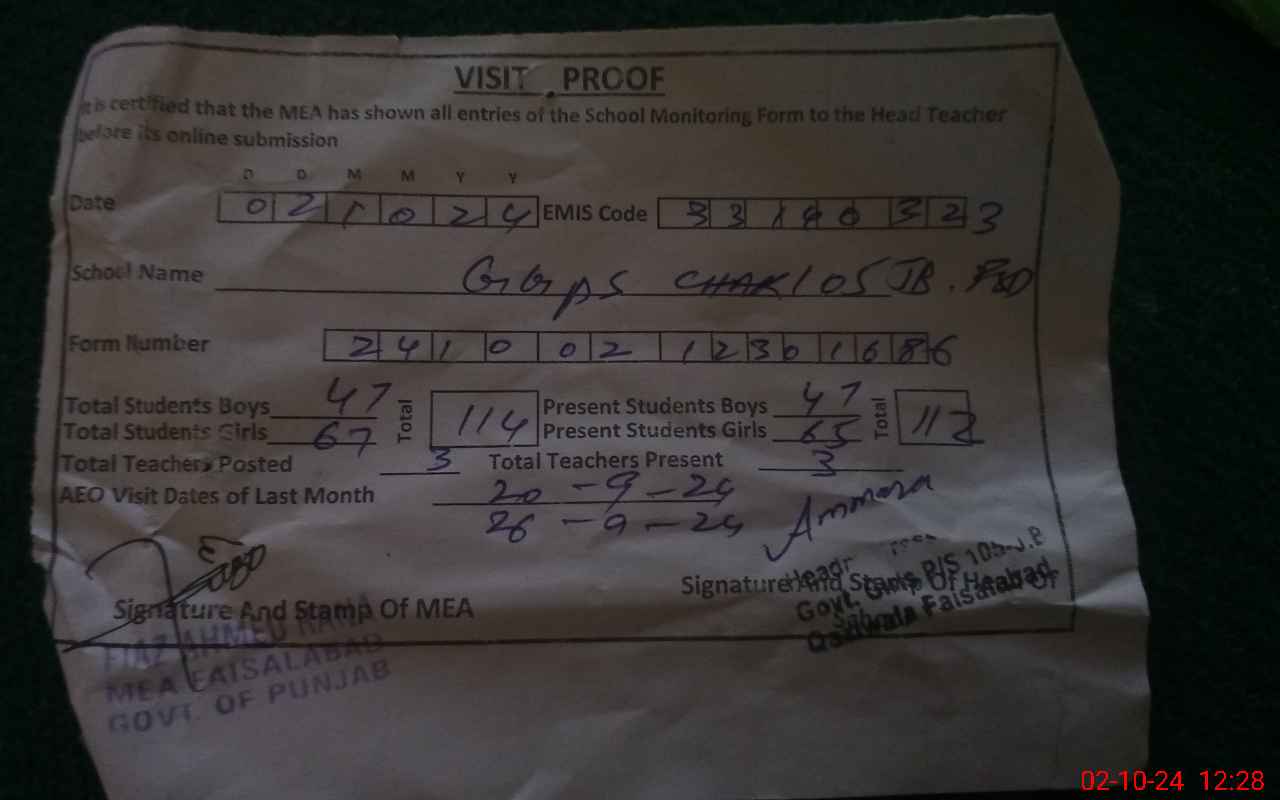 VISIT PROOF
It is certified that the MEA has shown all entries of the School Monitoring Form to the Head Teacher
before its online submission
D D M M Y Y
Date 02 10 24 EMIS Code 33100323
School Name GGPS CHAK 105 JB. FSD
Form Number 24100212301686
Total Students Boys 47 Total 114 Present Students Boys 47 Total 112
Total Students Girls 67 Present Students Girls 65
Total Teachers Posted 3 Total Teachers Present 3
AEO Visit Dates of Last Month 20-9-24
26-9-24
Ammara
Signature And Stamp Of MEA
Signature And Stamp Of Head Of
Govt. Girls P/S 105-J.B
Faisalabad
FIAZ AHMED
MEA FAISALABAD
GOVT. OF PUNJAB
02-10-24 12:28